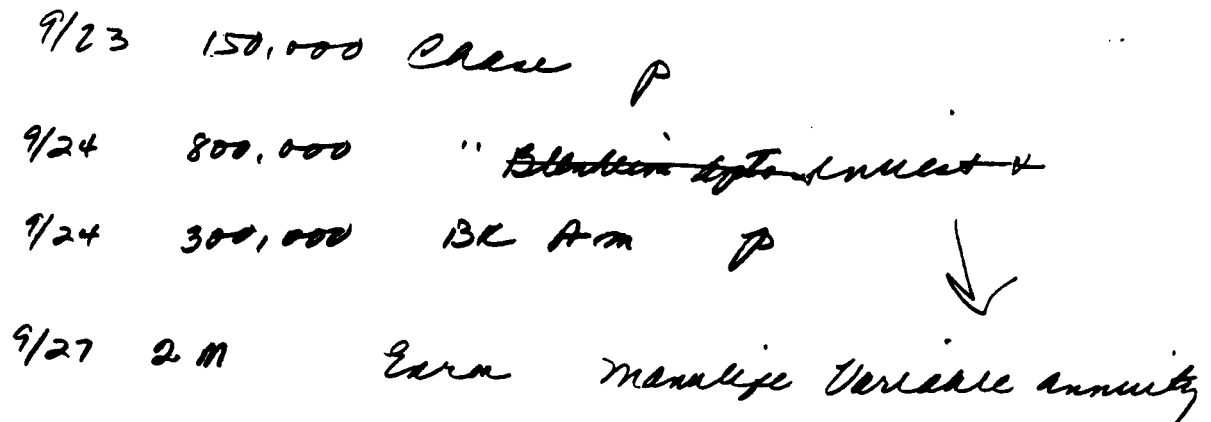 9/23 150,000 Chase P
9/24 800,000 " Invest
9/24 300,000 BK Am P
9/27 2 M Manulife Variable annuity